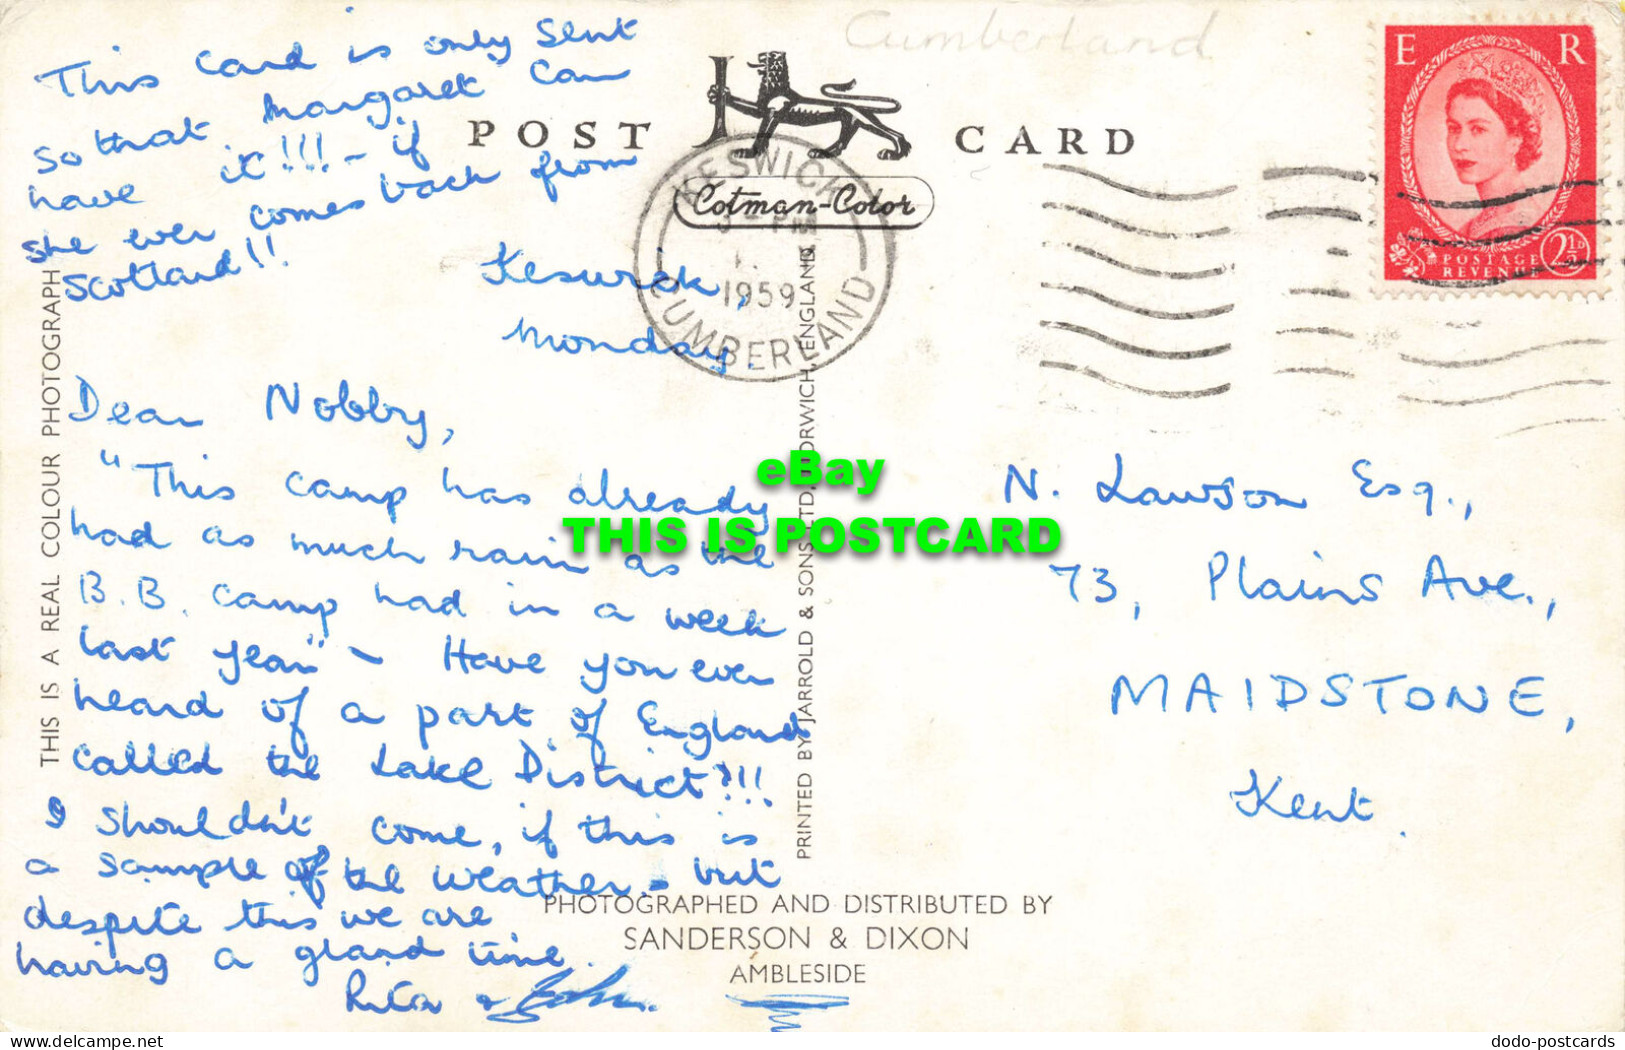 This card is only sent
so that Margaret can
have it!!! - if
she ever comes back from
Scotland!!
Cumberland
POST CARD
Cotman-Color
KESWICK
1959
CUMBERLAND
E R
POSTAGE
REVENUE
2½D
Keswick,
Monday.
Dear Nobby,
"This camp has already
had as much rain as the
B.B. camp had in a week
last year" - Have you ever
heard of a part of England
called the Lake District?!!!
I shouldn't come, if this is
a sample of the weather - but
despite this we are
having a grand time.
Rita &
N. Lawson Esq.,
73, Plains Ave.,
MAIDSTONE,
Kent.
THIS IS A REAL COLOUR PHOTOGRAPH
PRINTED BY JARROLD & SONS LTD, NORWICH, ENGLAND
PHOTOGRAPHED AND DISTRIBUTED BY
SANDERSON & DIXON
AMBLESIDE
eBay
THIS IS POSTCARD
delcampe.net
dodo-postcards